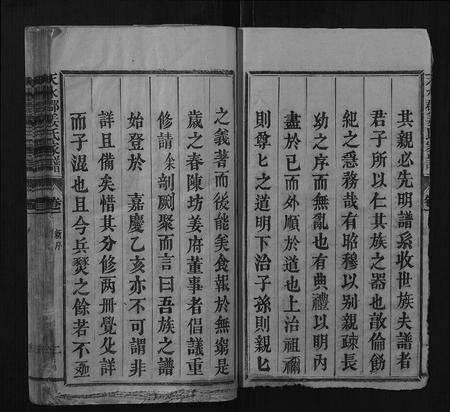 其親必先明譜系收世族夫譜者
君子所以仁其族之器也敦倫飭
紀之急務哉有昭穆以别親疎長
幼之序而無亂也有典禮以明内
盡於已而外順於道也上治祖禰
則尊匕之道明下治子孫則親匕
之義著而後能美食報於無窮是
歲之春陳坊姜府董事者倡議重
修請余剞劂聚而言曰吾族之譜
始登於 嘉慶乙亥亦不可謂非
詳且備矣惜其分修兩册覺父詳
而子混也且今兵燹之餘若不亟
天水郡姜氏家譜
卷一
新序